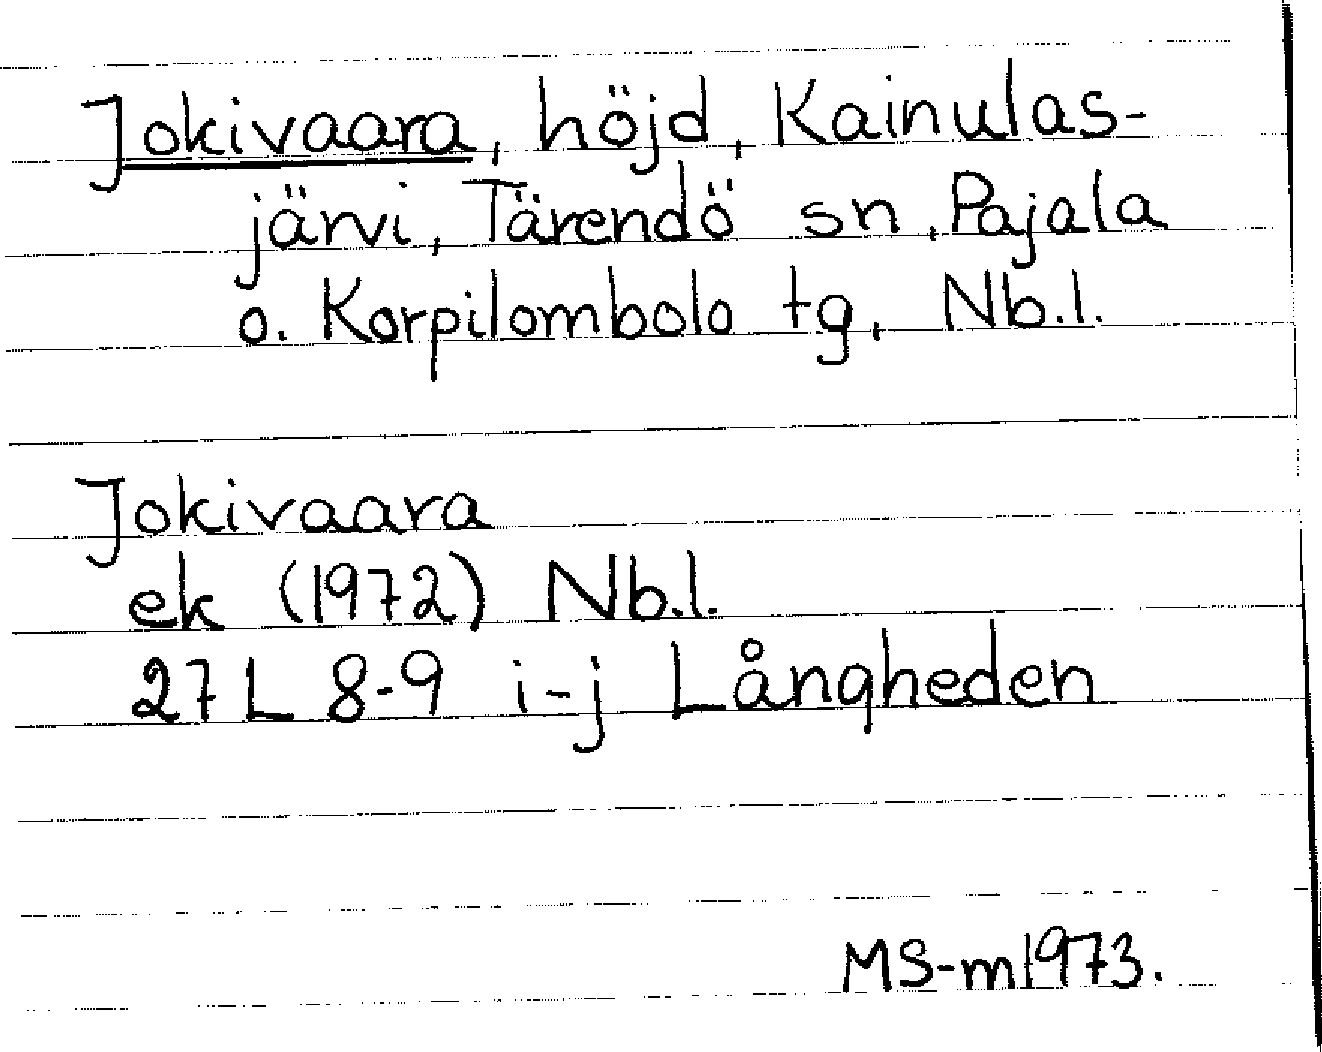 Jokivaara, höjd, Kainulas-
järvi, Tärendö sn, Pajala
o. Korpilombolo tg, Nb.l.
Jokivaara
ek (1972) Nb.l.
27 L 8-9 i-j Långheden
MS-m1973.